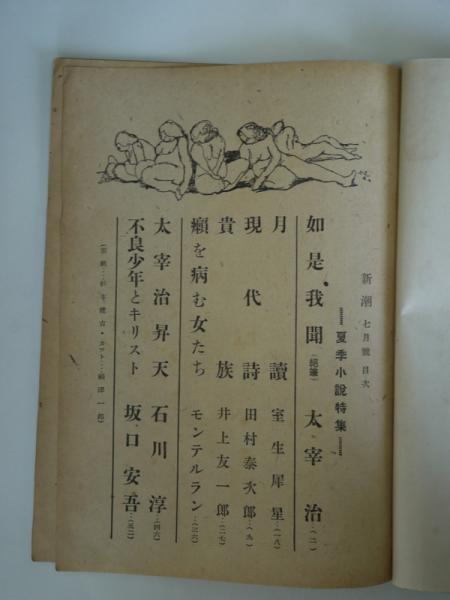 新潮 七月號 目次
夏季小說特集
如是我聞（絕筆） 太宰治…（二）
月讀 室生犀星…（一八）
現代詩 田村泰次郎…（九）
貴族 井上友一郎…（二七）
癩を病む女たち モンテルラン…（三六）
太宰治昇天 石川淳…（四六）
不良少年とキリスト 坂口安吾…（五二）